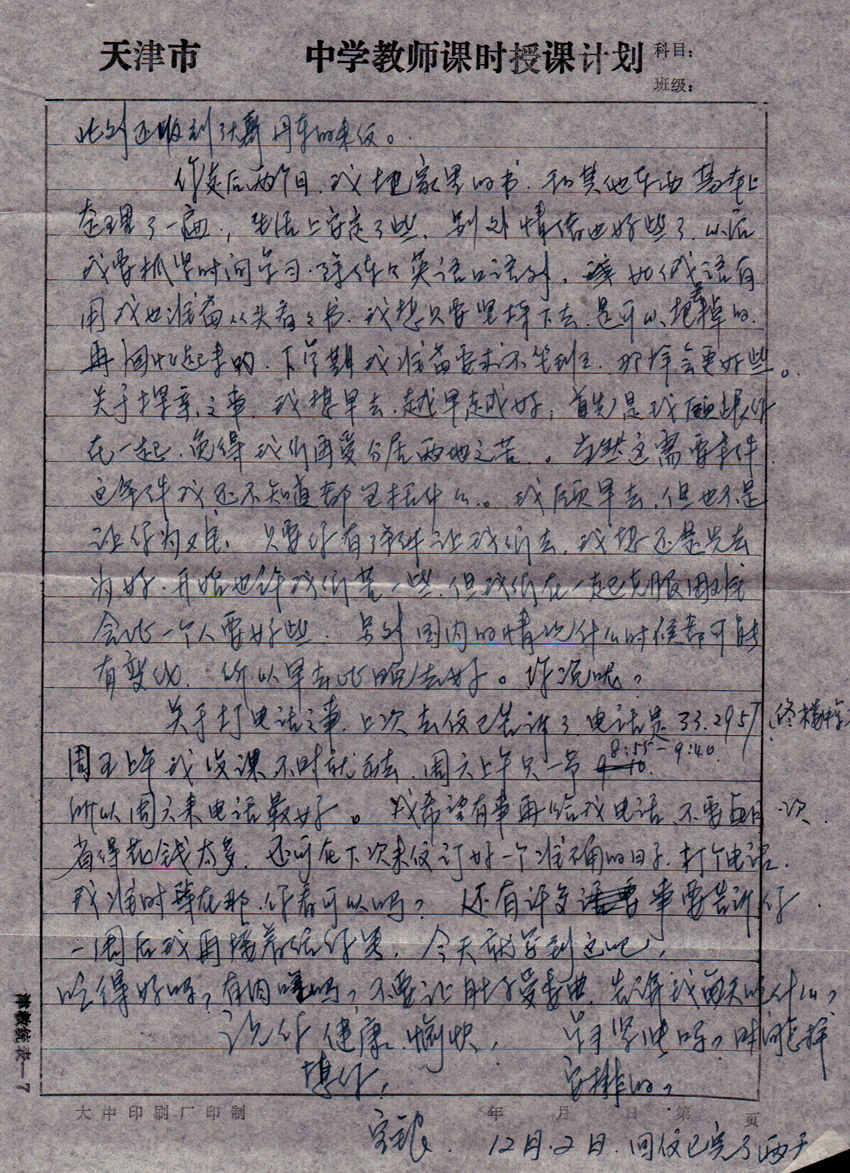 天津市 中学教师课时授课计划 科目：
班级：
此外还收到 的来信。
你走后两个月，我把家里的书，和其他东西基本上
整理了一遍，生活上安定了些，另外情绪也好些了，以后
我要抓紧时间学习，除 英语口语外， 俄语有
用我也准备从头看看书，我想只要坚持下去，是可以把 掉的
再回忆起来的，下学期我准备要求不坐班，那样会更好些。
关于探亲之事，我想早去，越早越好，首先是我愿跟你
在一起，免得我们再受分居两地之苦。当然这需要条件，
这条件我还不知道都包括什么。我愿早去，但也不是
让你为难，只要你有条件让我们去，我想还是先去
为好，开始也许我们苦一些，但我们在一起克服困难
会比一个人要好些，另外国内的情况什么时候都可能
有变化，所以早去比晚去好。你说呢？
关于打电话之事，上次去信已告诉了，电话是33.2957
周五上午我没课不时就回去，周六上午只一节 8:55-9:40
所以周六来电话最好。我希望有事再给我电话，不要每月 次
省得花钱太多，还可在下次来信订好一个准确的日子，打个电话，
我准时等在那，你看可以吗？还有许多 事要告诉你
一周后我再接着给你写，今天就写到这吧，
吃得好吗？有肉 吗？不要让肚子受委曲， 每天吃什么？
祝你 健康、愉快， 学习紧张吗？时间怎样
想你， 安排的？
12月.2日. 回信已完了两天
大中印刷厂印制 年 月 日 第 页
7